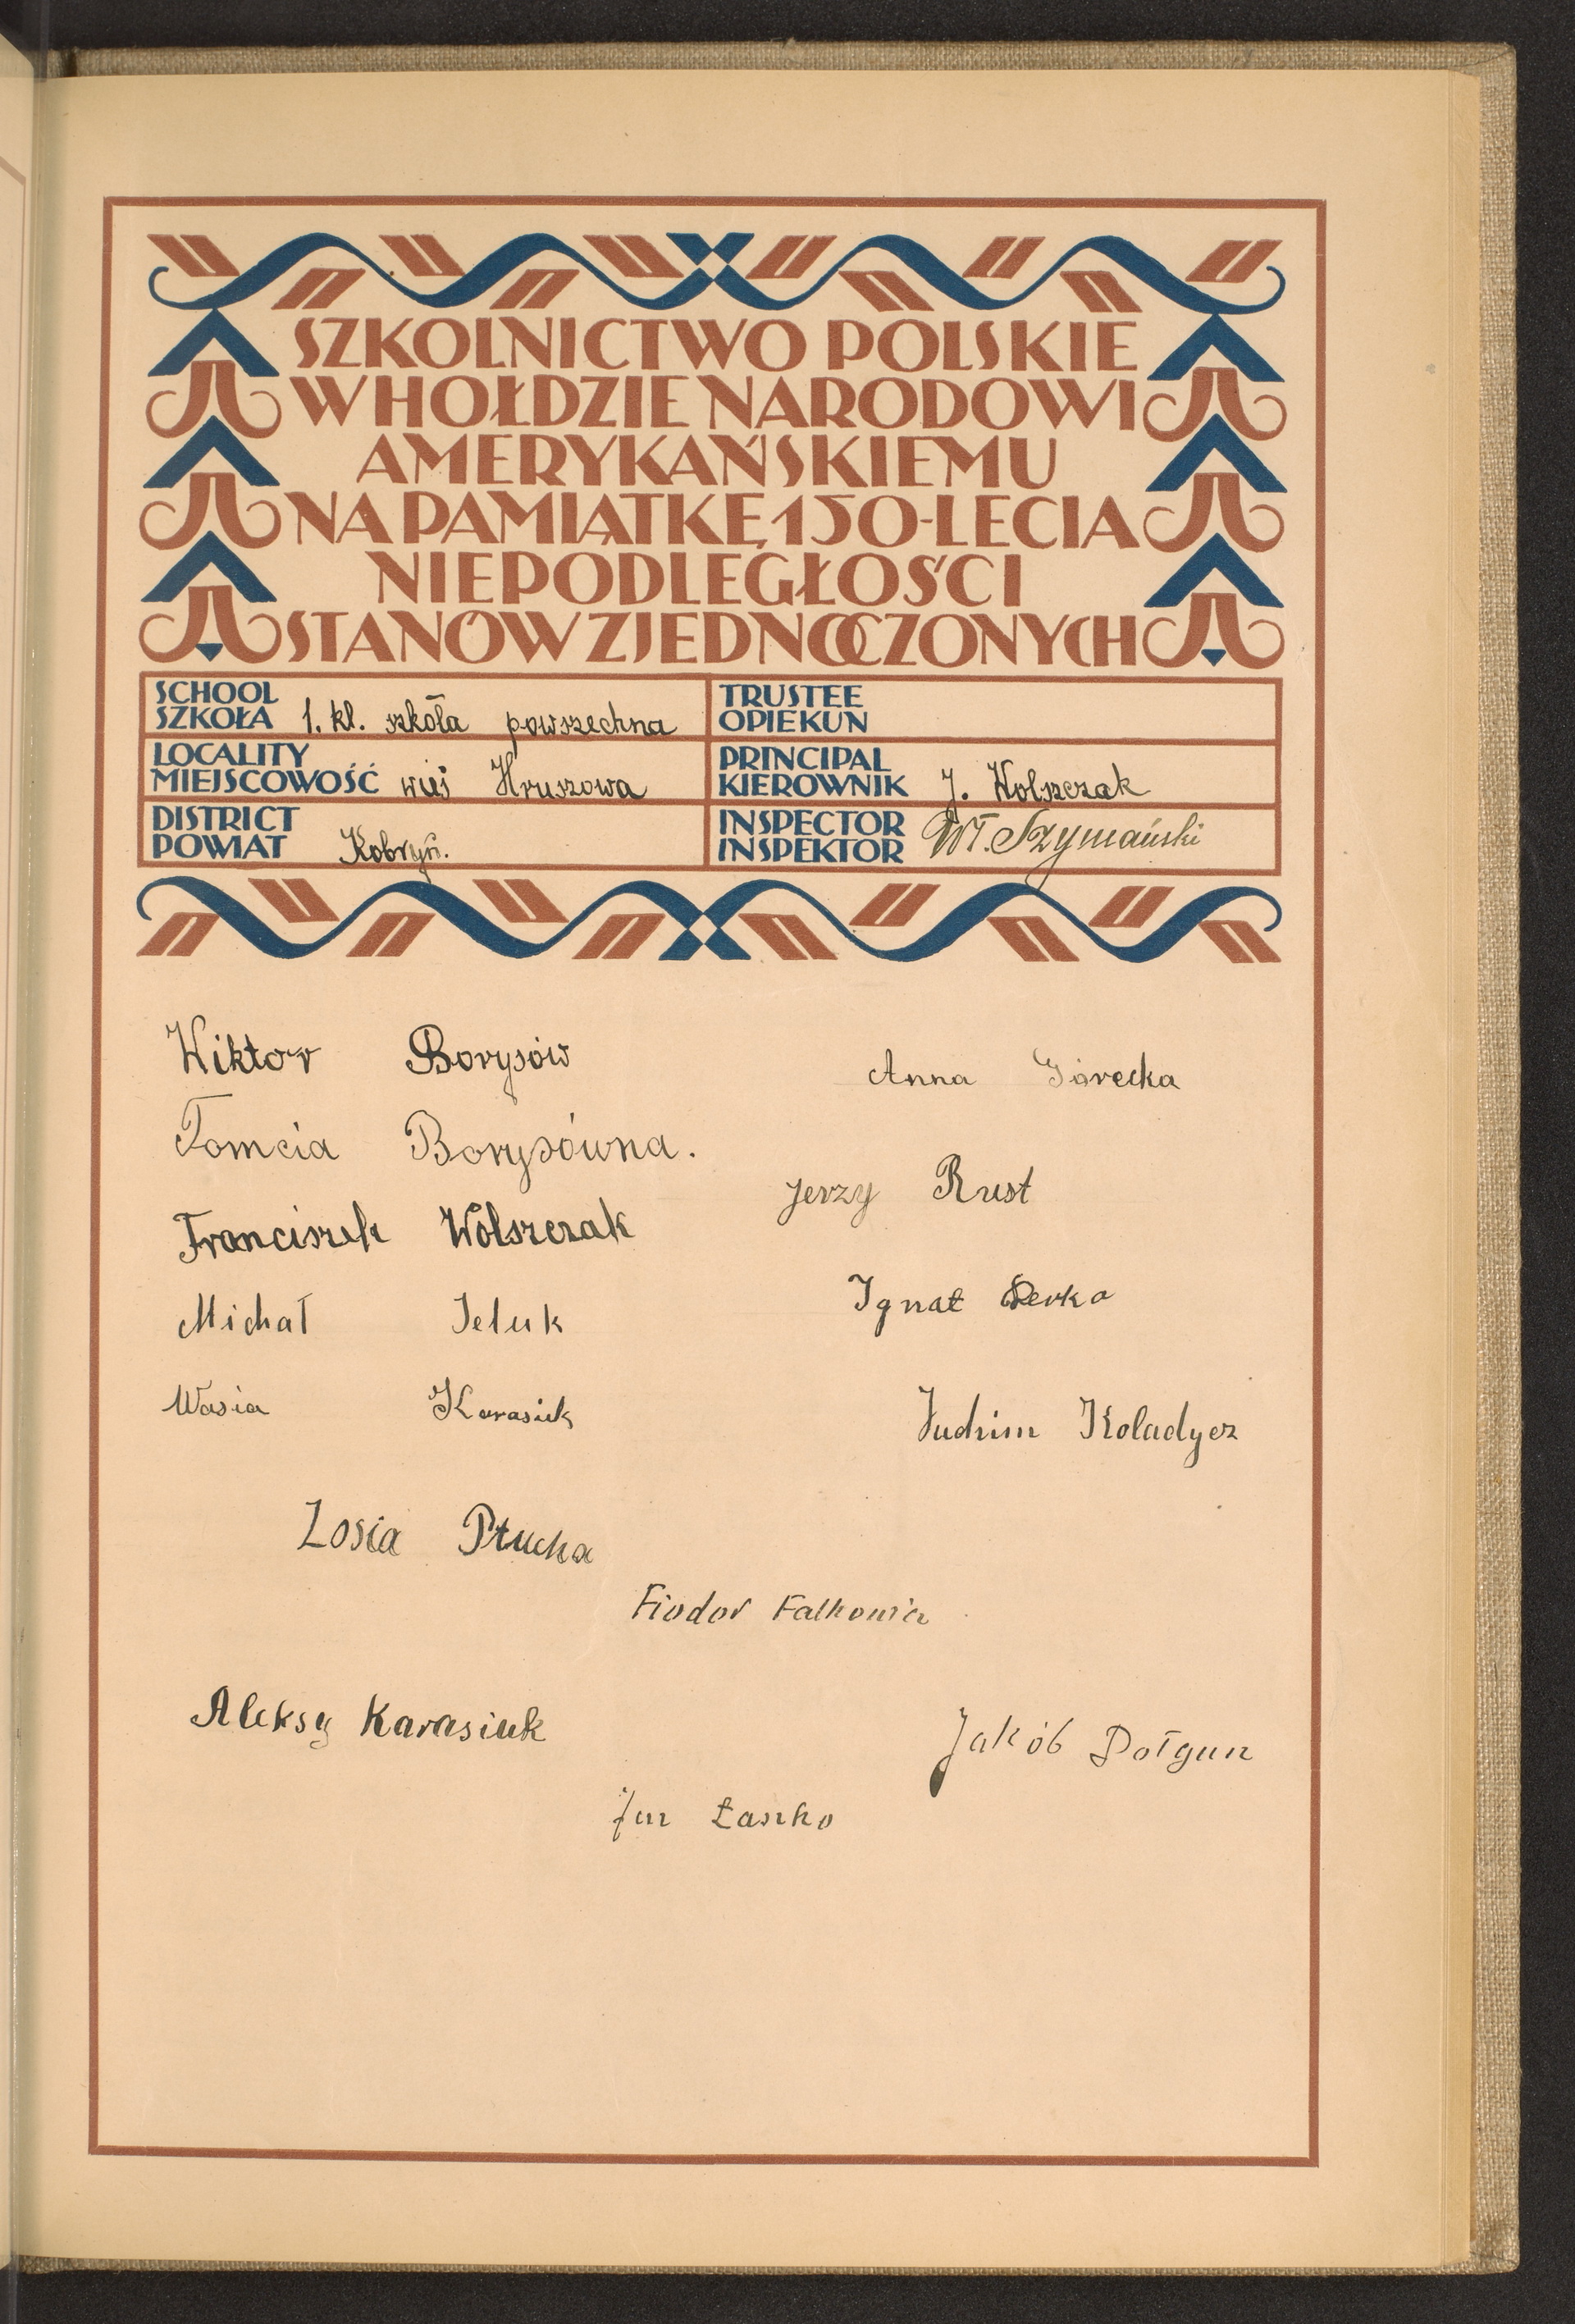 SZKOLNICTWO POLSKIE
W HOŁDZIE NARODOWI
AMERYKAŃSKIEMU
NA PAMIĄTKĘ 150-LECIA
NIEPODLEGŁOŚCI
STANÓW ZJEDNOCZONYCH
SCHOOL
SZKOŁA 1. kl. szkoła powszechna
TRUSTEE
OPIEKUN
LOCALITY
MIEJSCOWOŚĆ wieś Hruszowa
PRINCIPAL
KIEROWNIK J. Wolszczak
DISTRICT
POWIAT Kobryń.
INSPECTOR
INSPEKTOR Wł. Szymański
Wiktor Borysów
Anna Górecka
Tomcia Borysówna.
Jerzy Rust
Franciszek Wolszczak
Ignat Derko
Michał Jeluk
Wasia Karasiuk
Judzim Koladycz
Zosia Ptucha
Fiodor Falkowia
Aleksy Karasiuk
Jakób Dołgun
Jan Łaszko